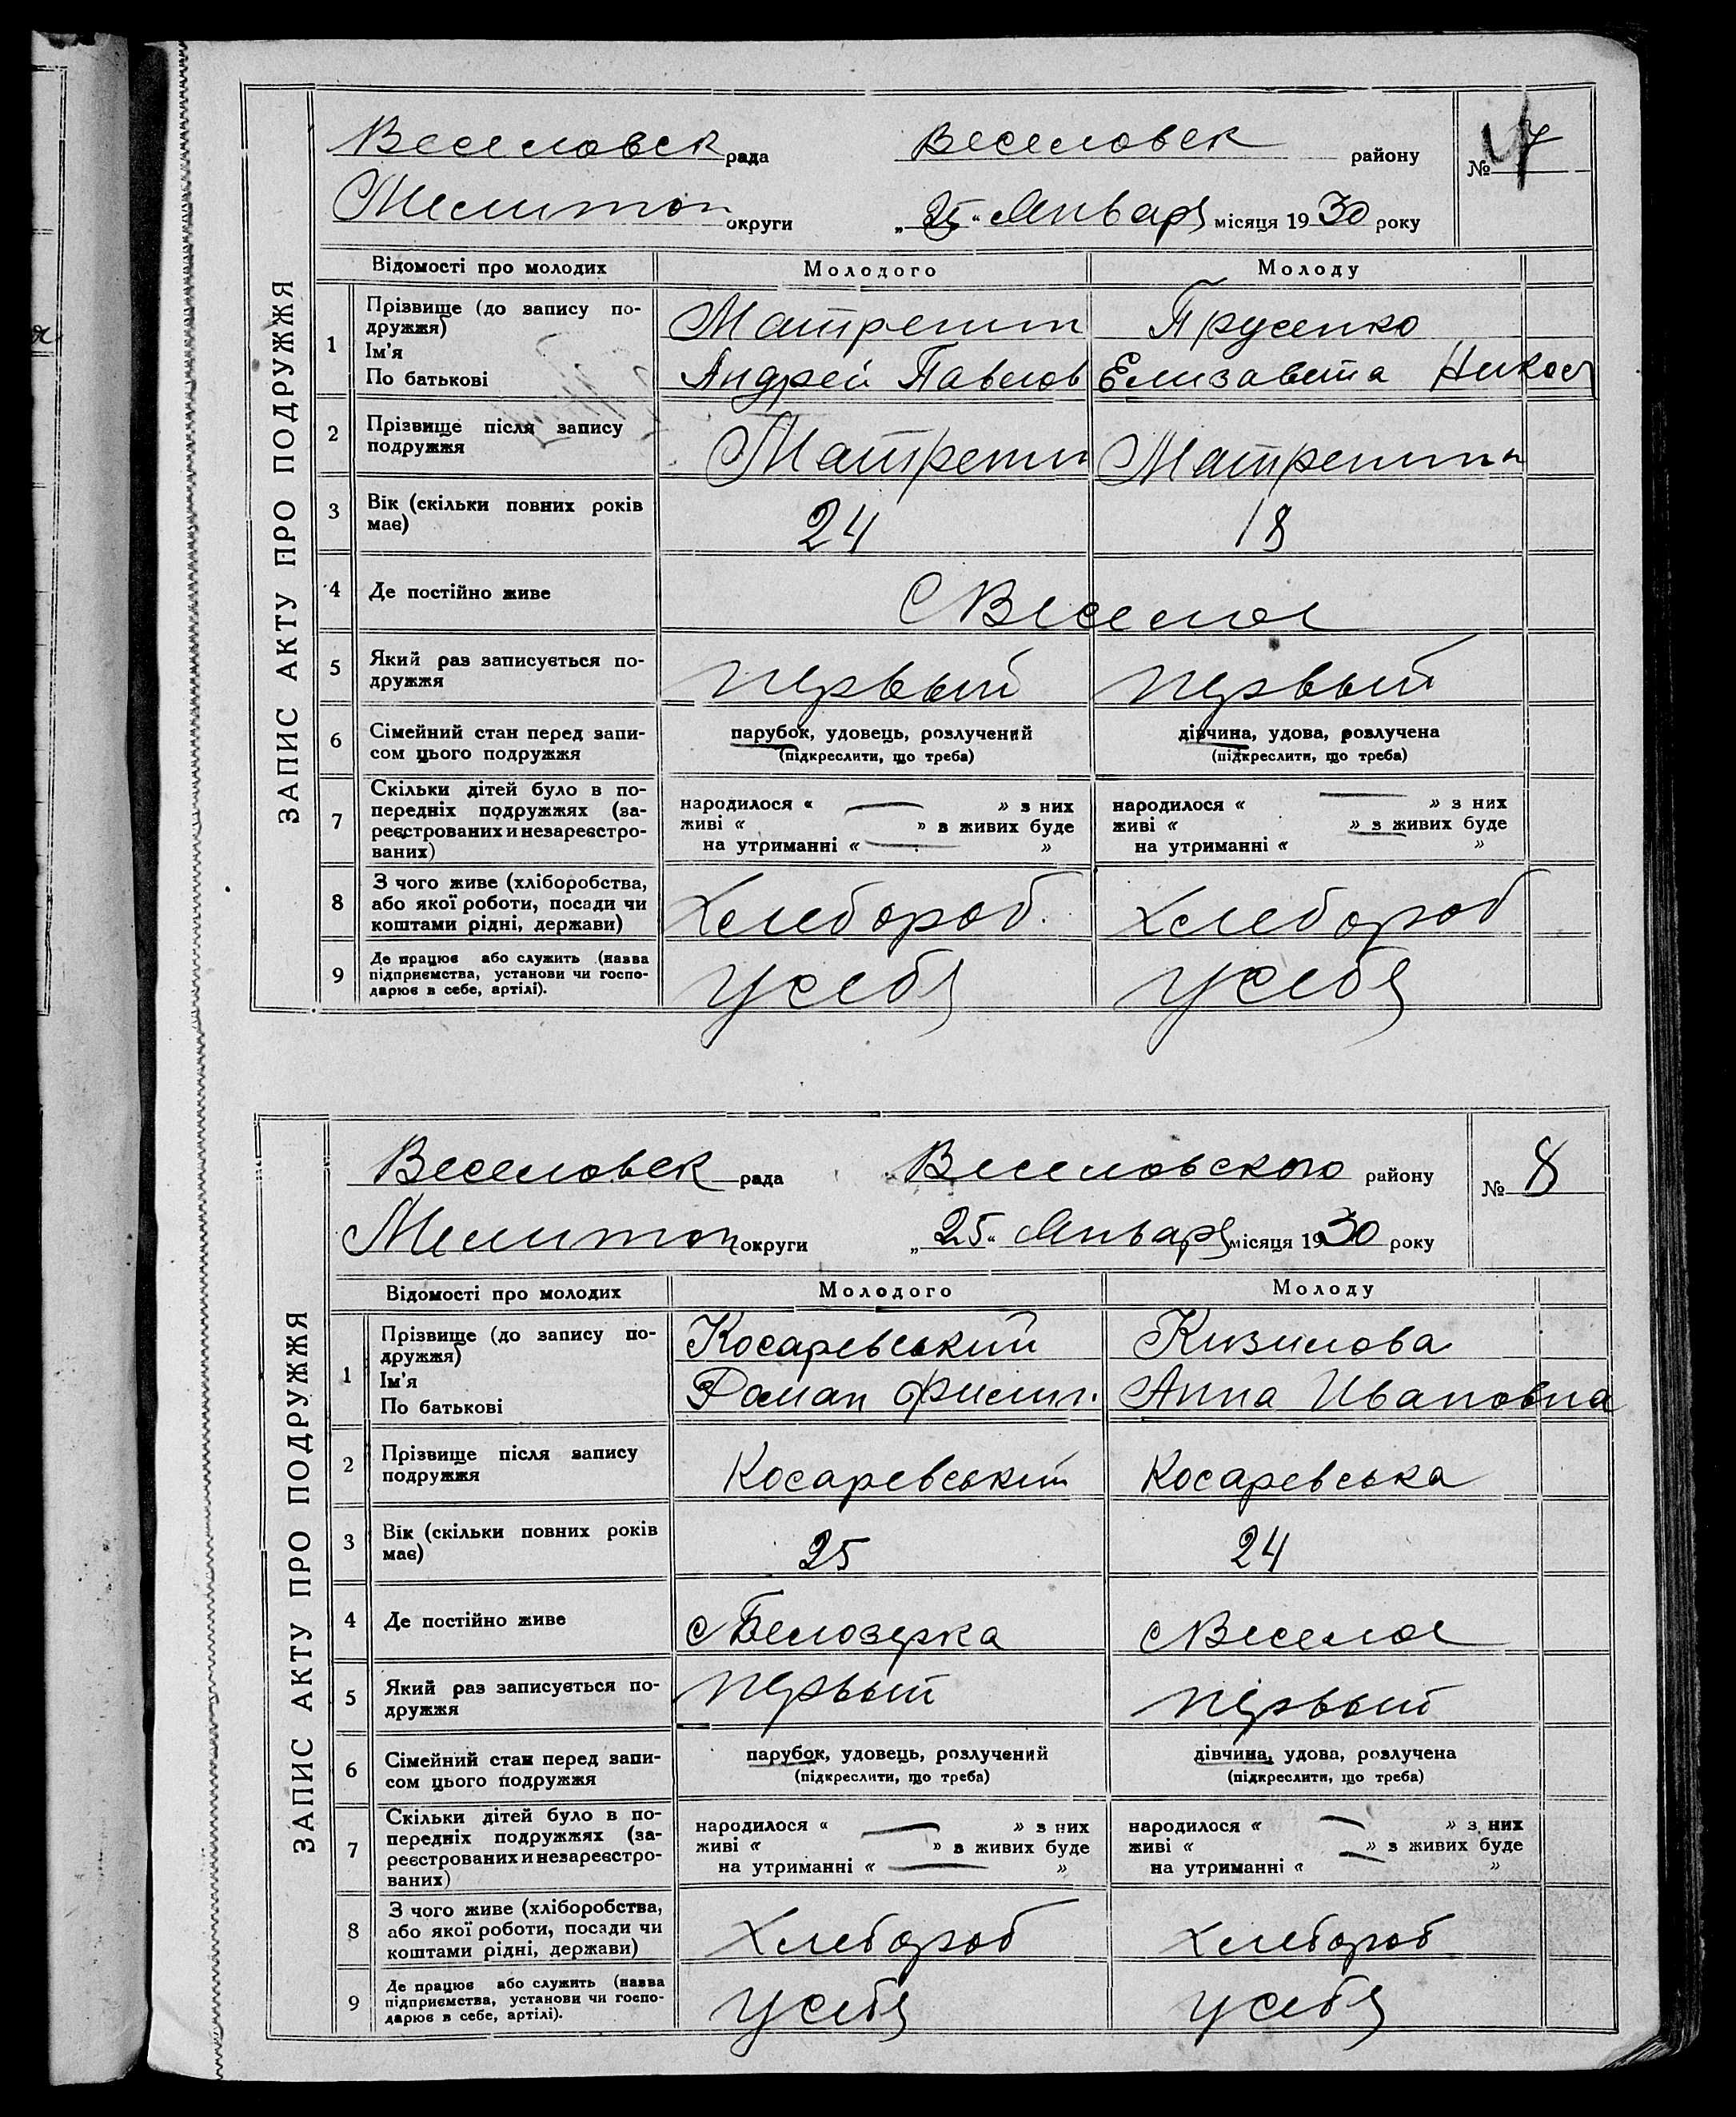 ЗАПИС АКТУ ПРО ПОДРУЖЖЯ
Веселовск рада Веселовск району № 7
Мелитоп округи „25“ Январ я місяця 1930 року
Відомості про молодих Молодого Молоду
1 Прізвище (до запису по-
дружжя) Матренин Прусенко
Ім'я
По батькові Андрей Павлов Елизавета Никол
2 Прізвище після запису
подружжя Матренин Матренина
3 Вік (скільки повних років
має) 24 18
4 Де постійно живе С Веселое
5 Який раз записується по-
дружжя первый первый
6 Сімейний стан перед запи-
сом цього подружжя
парубок, удовець, розлучений дівчина, удова, розлучена
(підкреслити, що треба) (підкреслити, що треба)
7 Скільки дітей було в по-
передніх подружжях (за-
реєстрованих и незареєстро-
ваних)
народилося « — » з них народилося « — » з них
живі « » в живих буде живі « » з живих буде
на утриманні « — » на утриманні « »
8 З чого живе (хліборобства,
або якої роботи, посади чи
коштами рідні, держави) Хлебороб. хлебороб
9 Де працює або служить (назва
підприємства, установи чи госпо-
дарює в себе, артілі). у себя у себя
ЗАПИС АКТУ ПРО ПОДРУЖЖЯ
Веселовск рада Веселовского району № 8
Мелитоп округи „25“ Январ я місяця 1930 року
Відомості про молодих Молодого Молоду
1 Прізвище (до запису по-
дружжя) Косаревський Кизилова
Ім'я
По батькові Роман Филип. Анна Ивановна
2 Прізвище після запису
подружжя Косаревський Косаревська
3 Вік (скільки повних років
має) 25 24
4 Де постійно живе с Белозерка с Веселое
5 Який раз записується по-
дружжя первый первый
6 Сімейний стан перед запи-
сом цього подружжя
парубок, удовець, розлучений дівчина, удова, розлучена
(підкреслити, що треба) (підкреслити, що треба)
7 Скільки дітей було в по-
передніх подружжях (за-
реєстрованих и незареєстро-
ваних)
народилося « — » з них народилося « — » з них
живі « » в живих буде живі « — » з живих буде
на утриманні « — » на утриманні « »
8 З чого живе (хліборобства,
або якої роботи, посади чи
коштами рідні, держави) Хлебороб хлебороб
9 Де працює або служить (назва
підприємства, установи чи госпо-
дарює в себе, артілі). у себя у себя